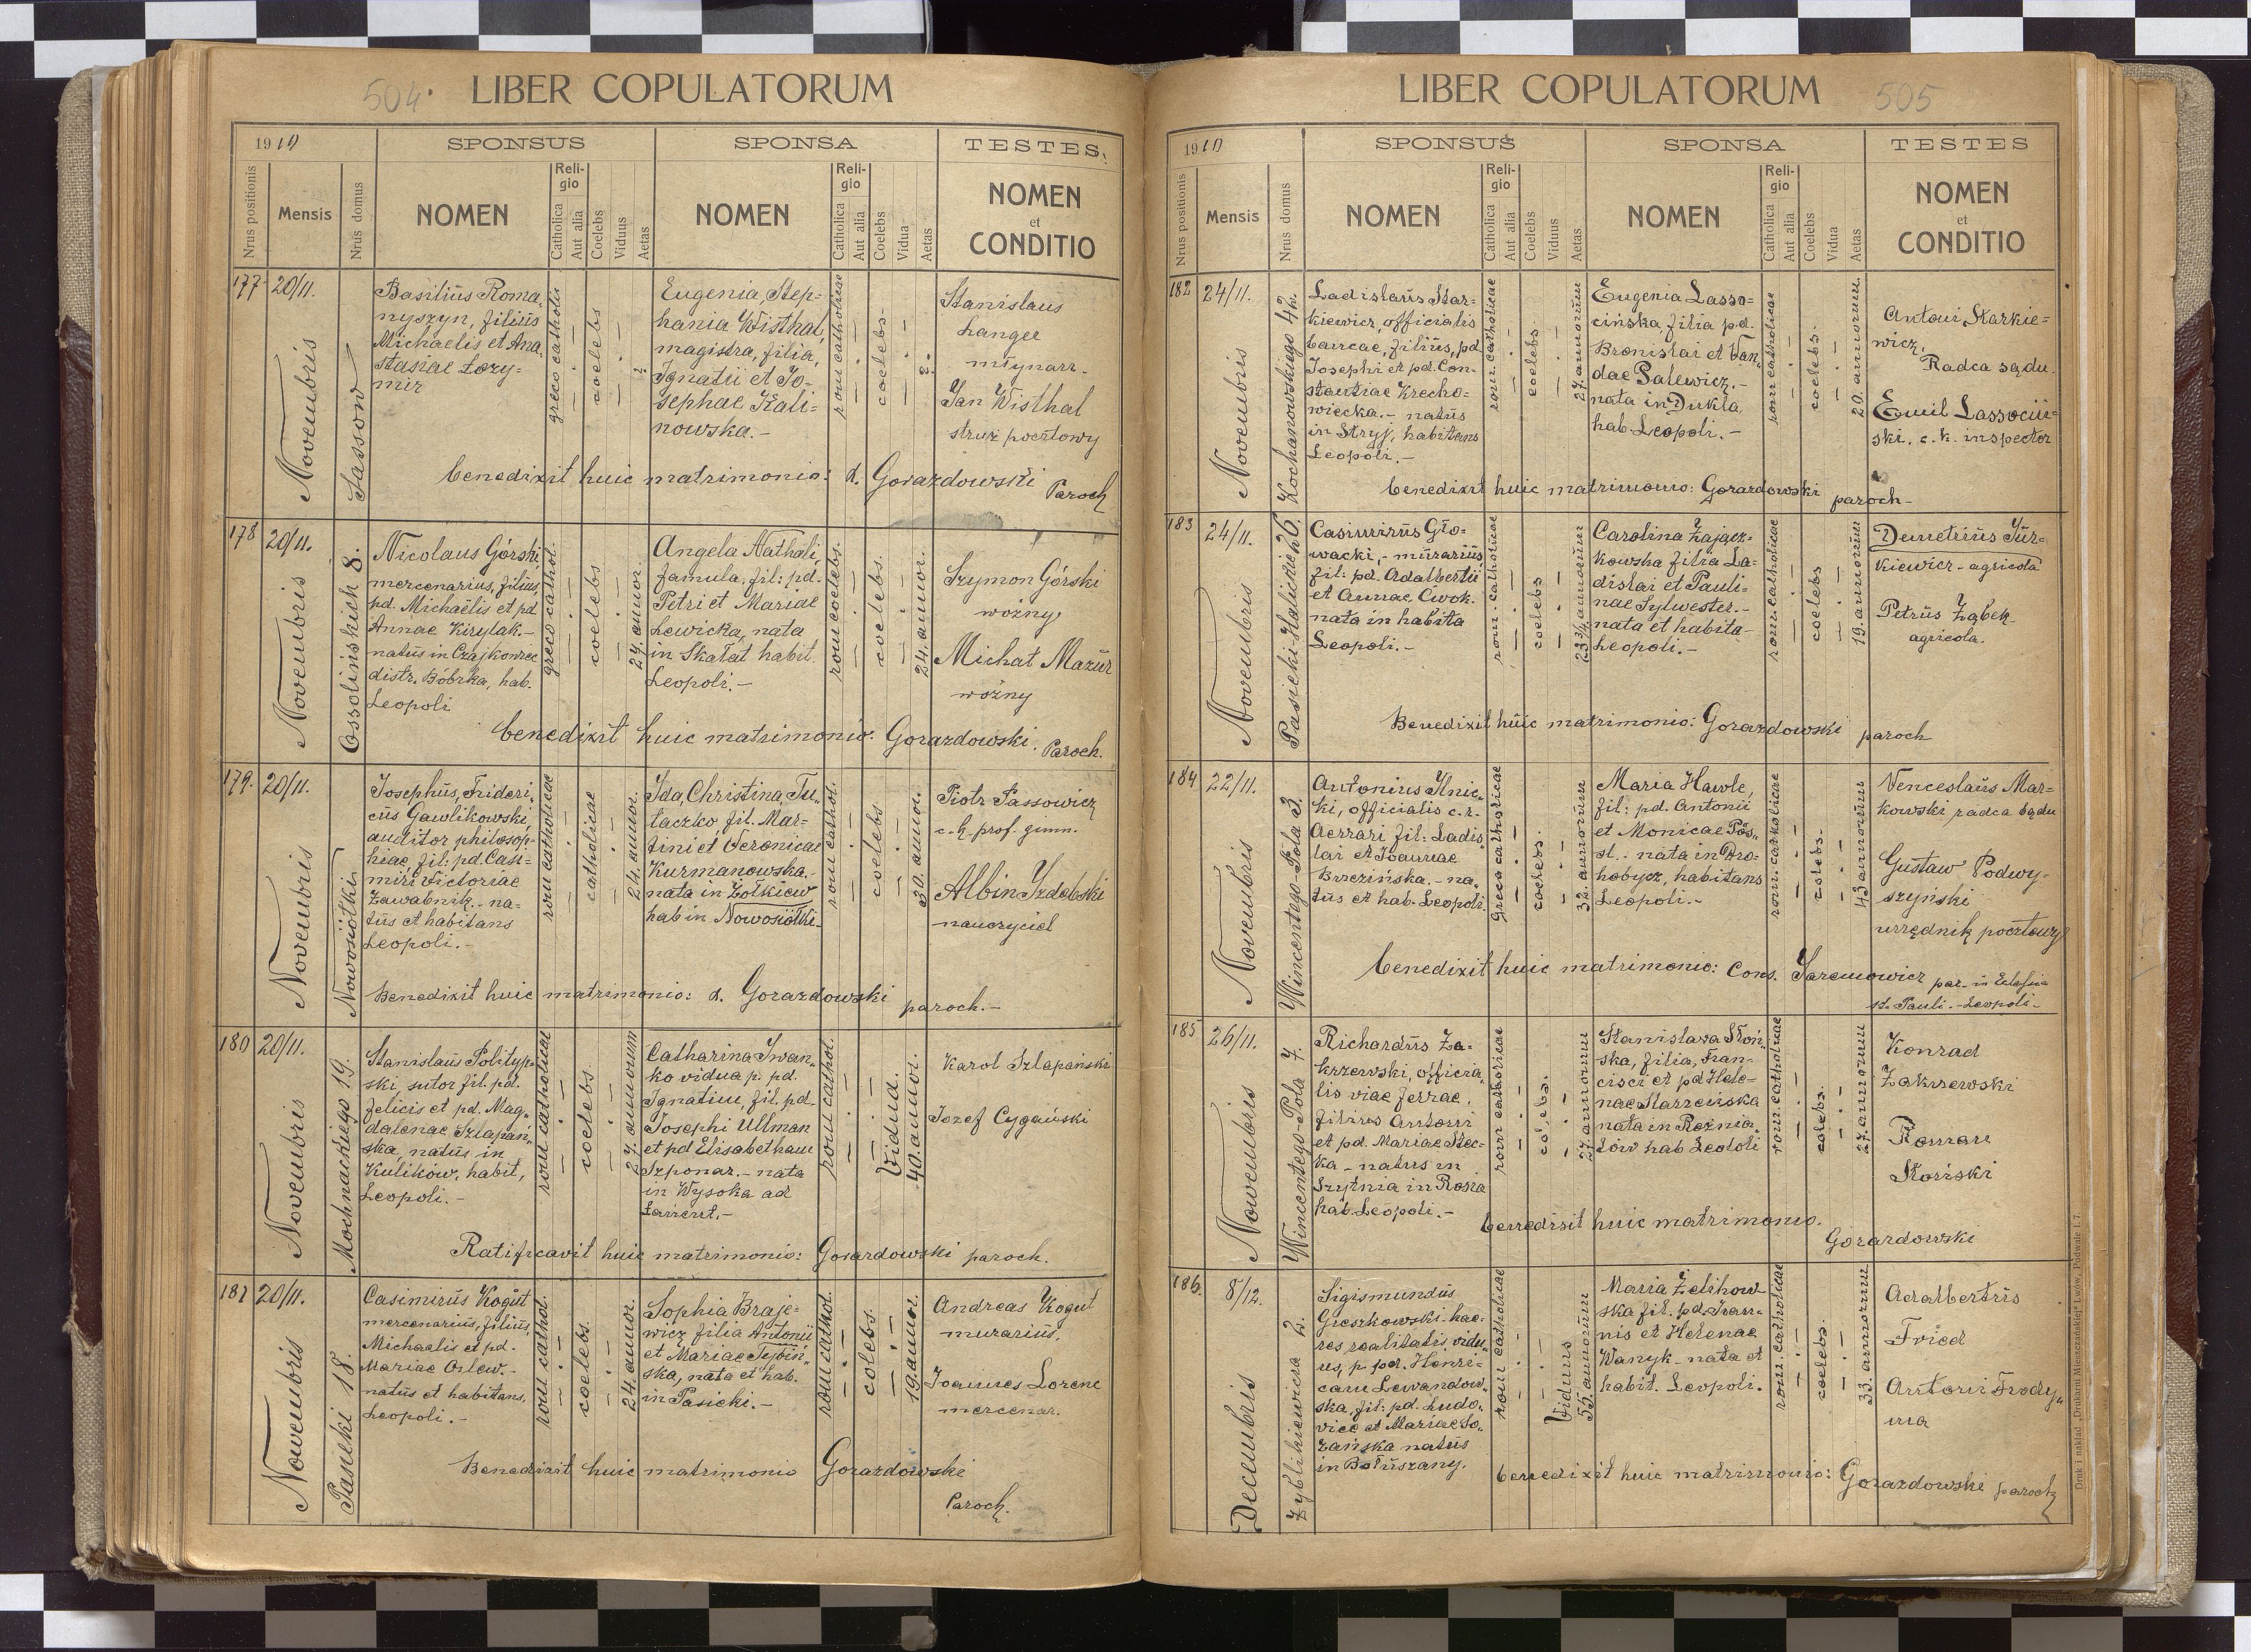 504.
LIBER COPULATORUM
1910
SPONSUS
SPONSA
TESTES.
Nrus positionis
Mensis
Nrus domus
NOMEN
Religio
Catholica
Aut alia
Coelebs
Viduus
Aetas
NOMEN
Religio
Catholica
Aut alia
Coelebs
Vidua
Aetas
NOMEN
et
CONDITIO
177
20/11.
Novembris
Sassow
Basiliŭs Roma„
nyszyn, filiŭs
Michaelis et Ana„
stasiae Łozy=
mir
greco catholic
coelebs
?
Eugenia, Step=
hania Wisthal,
magistra, filia,
Ignatii et Jo=
sephae Kali=
nowska.-
rom catholicae
coelebs
?
Stanislaus
Langee
młynarz.
Jan Wisthal
struż pocztowy
benedixit huic matrimonio: d. Gorazdowski Paroch
178
20/11.
Novembris
Ossolińskich 8.
Nicolaus Górski,
mercenarius, filiŭs,
pd. Michaëlis et pd
Annae Kirylak.-
natŭs in
distr. Bóbrka, hab.
Leopoli
greco cathol.
coelebs
24. annor.
Angela Nathali,
famula, fil: pd.
Petri et Mariae
Lewicka, nata
in Skałat habit.
Leopoli.-
rom coelebs.
coelebs.
24. annor.
Szymon Górski
wóżny
Michał Mazŭr
wóżny
benedixit huic matrimonio: Gorazdowski. Paroch.
179.
20/11.
Novembris
Nowosiółki
Josephŭs, Frideri„
cŭs Gawlikowski,
auditor philosop=
hiae, fil: pd. Casi=
miri Victoriae
Zawabnik.- na=
tŭs et habitans
Leopoli.-
rom catholicae
catholicae
24. annor.
Ida, Christina, Tu„
taczko fil. Mar=
tini et Veronicae
Kurmanowska.-
nata in Żółkiew
hab in Nowosiółki-
rom cathol.
coelebs
30. annor.
Piotr Passowicz
c.k. prof. gimn.
Albin Yzdebski
nauczyciel
Benedixit huic matrimonio: d. Gorazdowski paroch.-
180
20/11.
Novembris
Mochnackiego 19.
Stanislaŭs Polityp„
ski, sutor fil. pd.
felicis et pd. Mag„
dalenae Szlapań„
ska, natŭs in
Kulików, habit,
Leopoli.-
rom catholicae
coelebs.
27. annorum
Catharina Iwan„
ko vidua p. pd.
Ignatium, fil. pd.
Josephi Ullman
et pd Elisabetham
Szponar.- nata
in Wysoka ad
Łańcut.-
rom cathol.
Vidua.
40. annor.
Karol Szlapański
Jozef Cygański
Ratificavit huic matrimonio: Gorazdowski paroch.
181
20/11.
Novembris
Pasieki 18.
Casimirŭs Kogŭt
mercenariŭs, filiŭs,
Michaelis et pd.
Mariae Orlew.-
natŭs et habitans,
Leopoli.-
rom cathol.
coelebs.
24. annor.
Sophia Braje=
wicz filia Antonii
et Mariae
ska, nata et hab.
in Pasieki.-
rom cathol.
colebs.
19. annor.
Andreas Kogŭt
murariŭs.
Joannes Lorenc
mercenar.
Benedixit huic matrimonio Gorazdowski
Paroch.
LIBER COPULATORUM
505
1910
SPONSUS
SPONSA
TESTES
Nrus positionis
Mensis
Nrus domus
NOMEN
Religio
Catholica
Aut alia
Coelebs
Viduus
Aetas
NOMEN
Religio
Catholica
Aut alia
Coelebs
Vidua
Aetas
NOMEN
et
CONDITIO
182
24/11.
Novembris
Kochanowskiego 42.
Ladislaŭs Star=
kiewicz, officialis
bancae, filiŭs, pd.
Josephi et pd. Con=
stantiae Krecho=
wiecka.- natŭs
in Stryj, habitans
Leopoli.-
rom. catholicae
coelebs.
27 annorum
Eugenia Lasso=
cińska, filia pd.
Bronislai et Van„
dae Palewicz.-
nata in Dukla,
hab. Leopoli.-
rom catholicae
coelebs.
20. annorum.
Antoni Starkie=
wicz.
Radca sądu.
Emil Lassociń=
ski. c. k. inspector
benedixit huic matrimonio: Gorazdowski paroch-
183
24/11.
Novembris
Pasieki-Halickie 26.
Casimirŭs Gło=
wacki,- mŭrariŭs,
fil: pd. Adalbertii
et Annae Cwok.
nata in habita
Leopoli.-
rom. catholicae
coelebs
23 3/4 annorum
Carolina Zającz=
kowska filia La=
dislai et Pauli=
nae Sylwester.-
nata et habita-
Leopoli.-
rom. catholicae
coelebs
19. annorum
Demetriŭs Jŭr=
kiewicz - agricola
Petrŭs Ząbek
agricola.
Benedixit hŭic matrimonio: Gorazdowski paroch
184
22/11.
Novembris
Wincentego-Pola 3.
Antonius Ilnic„
ki, officialis c. r.
Aerrari fil: Ladis„
lai et Joannae
Brzezińska.- na„
tŭs et hab. Leopoli.
Greco catholicae
coelebs.
32. annorum
Maria Hawle,
fil: pd. Antonii
et Monicae Pŏs„
sl.- nata in Dro=
hobycz, habitans
Leopoli.-
rom. catholicae
colebs.
43 annorum
Venceslaŭs Mar=
kowski radca sądu
Gustaw Podwy=
szyński
urzędnik pocztowy
benedixit huic matrimonio: Cons. Jaremowicz par. in Eclesia
st. Pauli.-Leopoli-
185
26/11.
Novembris
Wincentego-Pola 7.
Richardŭs Za=
krzewski, officia=
lis viae ferrae,
filius Antoni
et pd. Mariae Stec=
ka - natus in
Szytnia in Rosia
hab. Leopoli.-
rom catholicae
colebs.
27 annorum
Stanislaza Słoń„
ska, filia, Fran=
cisci et pd Hele=
nae Starzeńska
nata in Roznia„
tów hab Leopoli
rom. catholicae
colebs.
27 annorum
Konrad
Zakrzewski
Roman
Słoński
benedixit huic matrimonio.
Gorazdowski
186.
8/12.
Decembris
Zyblikiewicza 2.
Sigismundŭs
Gieszkowski- hae=
res realitatis, vidu„
us, p. pd. Henri=
cam Lewandow„
ska, fil: pd. Ludo„
vice et Mariae
Zańska natŭs
in Botŭszany.
rom catholicae
Viduus
55. annorum
Maria Zelihow
ska fil. pd. Joan=
nis et Helenae
Wanyk - nata et
habit. Leopoli.
rom. catholicae
coelebs.
33. annorum
Adalbertŭs
Fried
Antoni Frody„
ma
benedixit huic matrimonio: Gorazdowski paroch
Druk i nakład „Drukarni Mieszczańskiej" Lwów, Podwale l. 7.